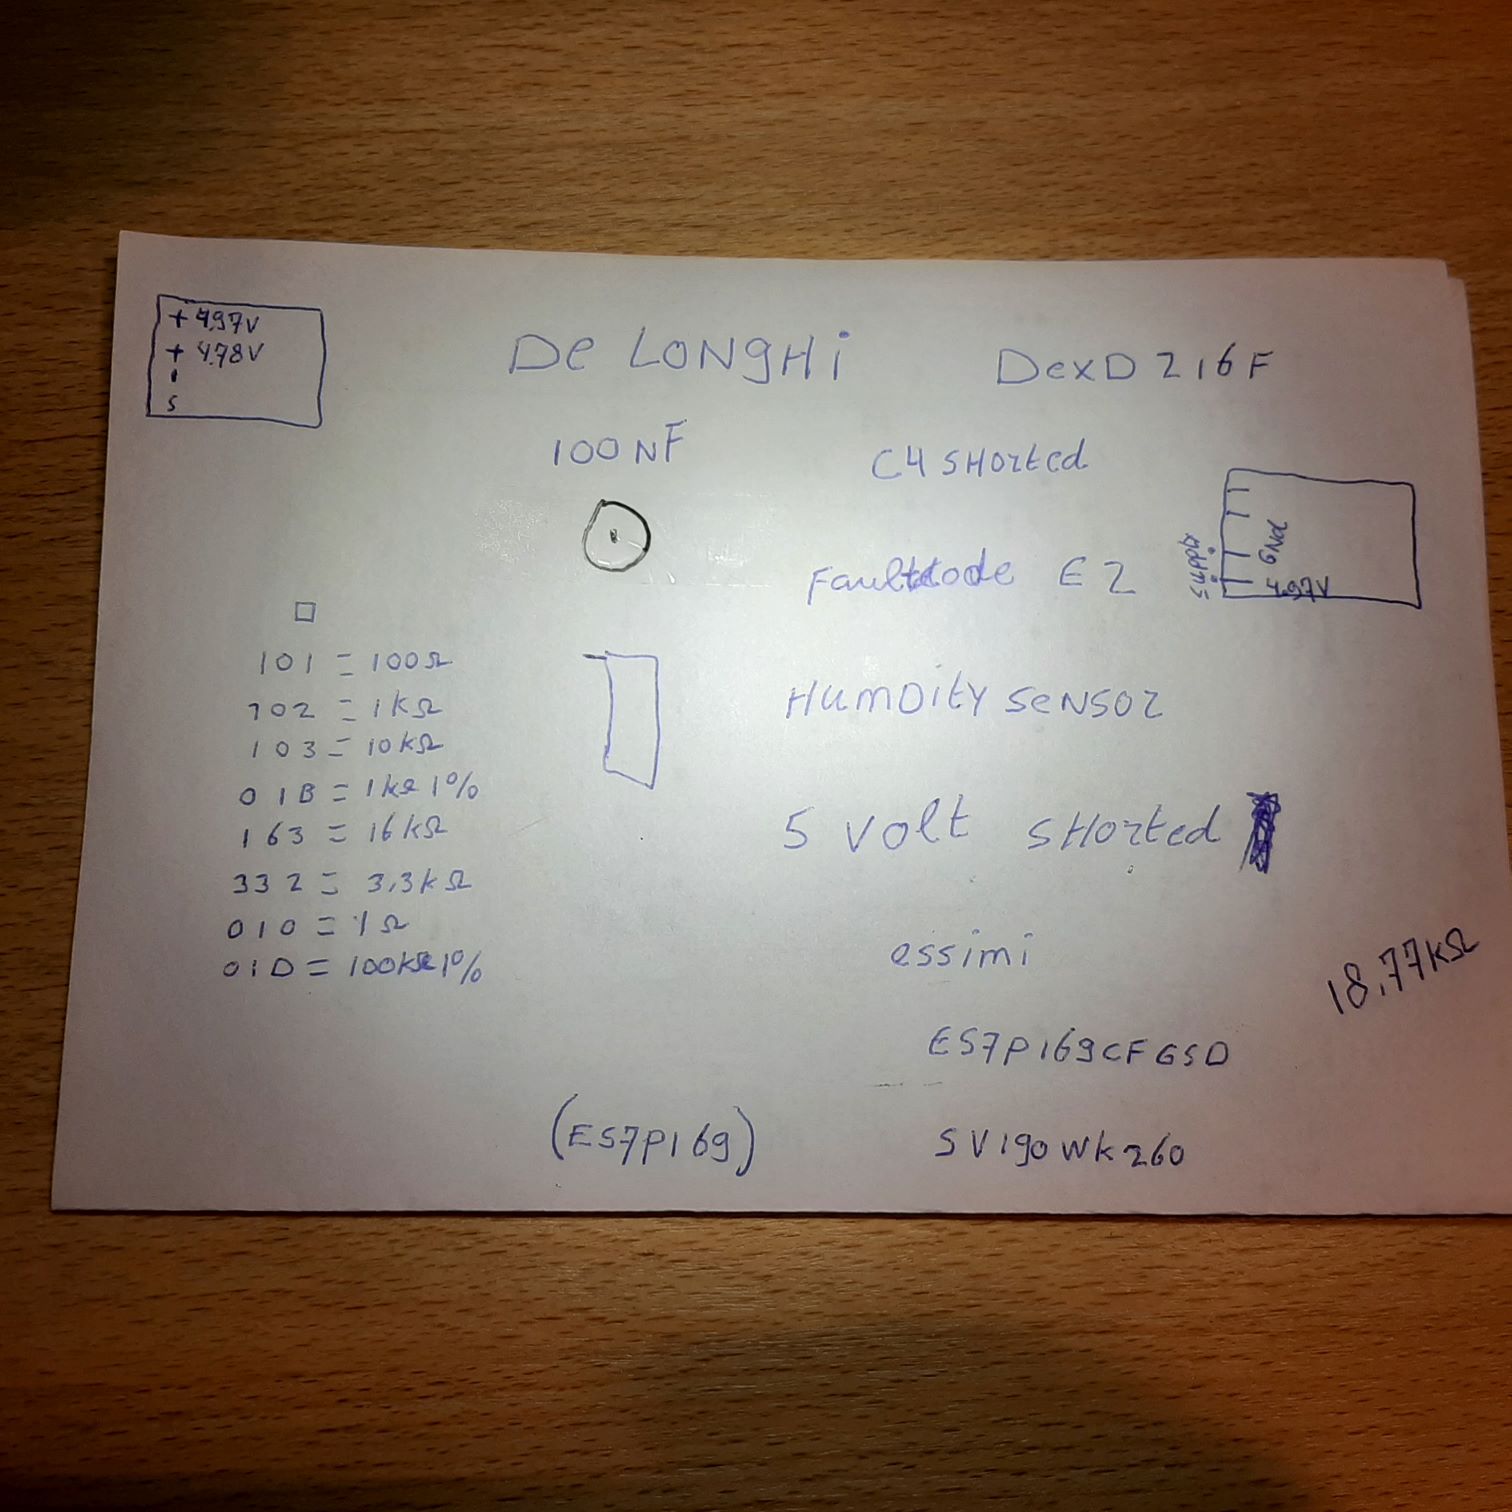 + 4.97V
+ 4.78V
S
De LONgHi DexD 216F
100NF
C4 SHorted
Faultcode E2
supply
GNd
4.97V
101 = 100Ω
102 = 1kΩ
103 = 10kΩ
01B = 1kΩ 1%
163 = 16kΩ
332 = 3,3kΩ
010 = 1Ω
01D = 100kΩ 1%
HumDity SeNSor
5 Volt SHorted
essimi
18.77kΩ
ES7P169CFGSD
(ES7P169)
SV190WK260